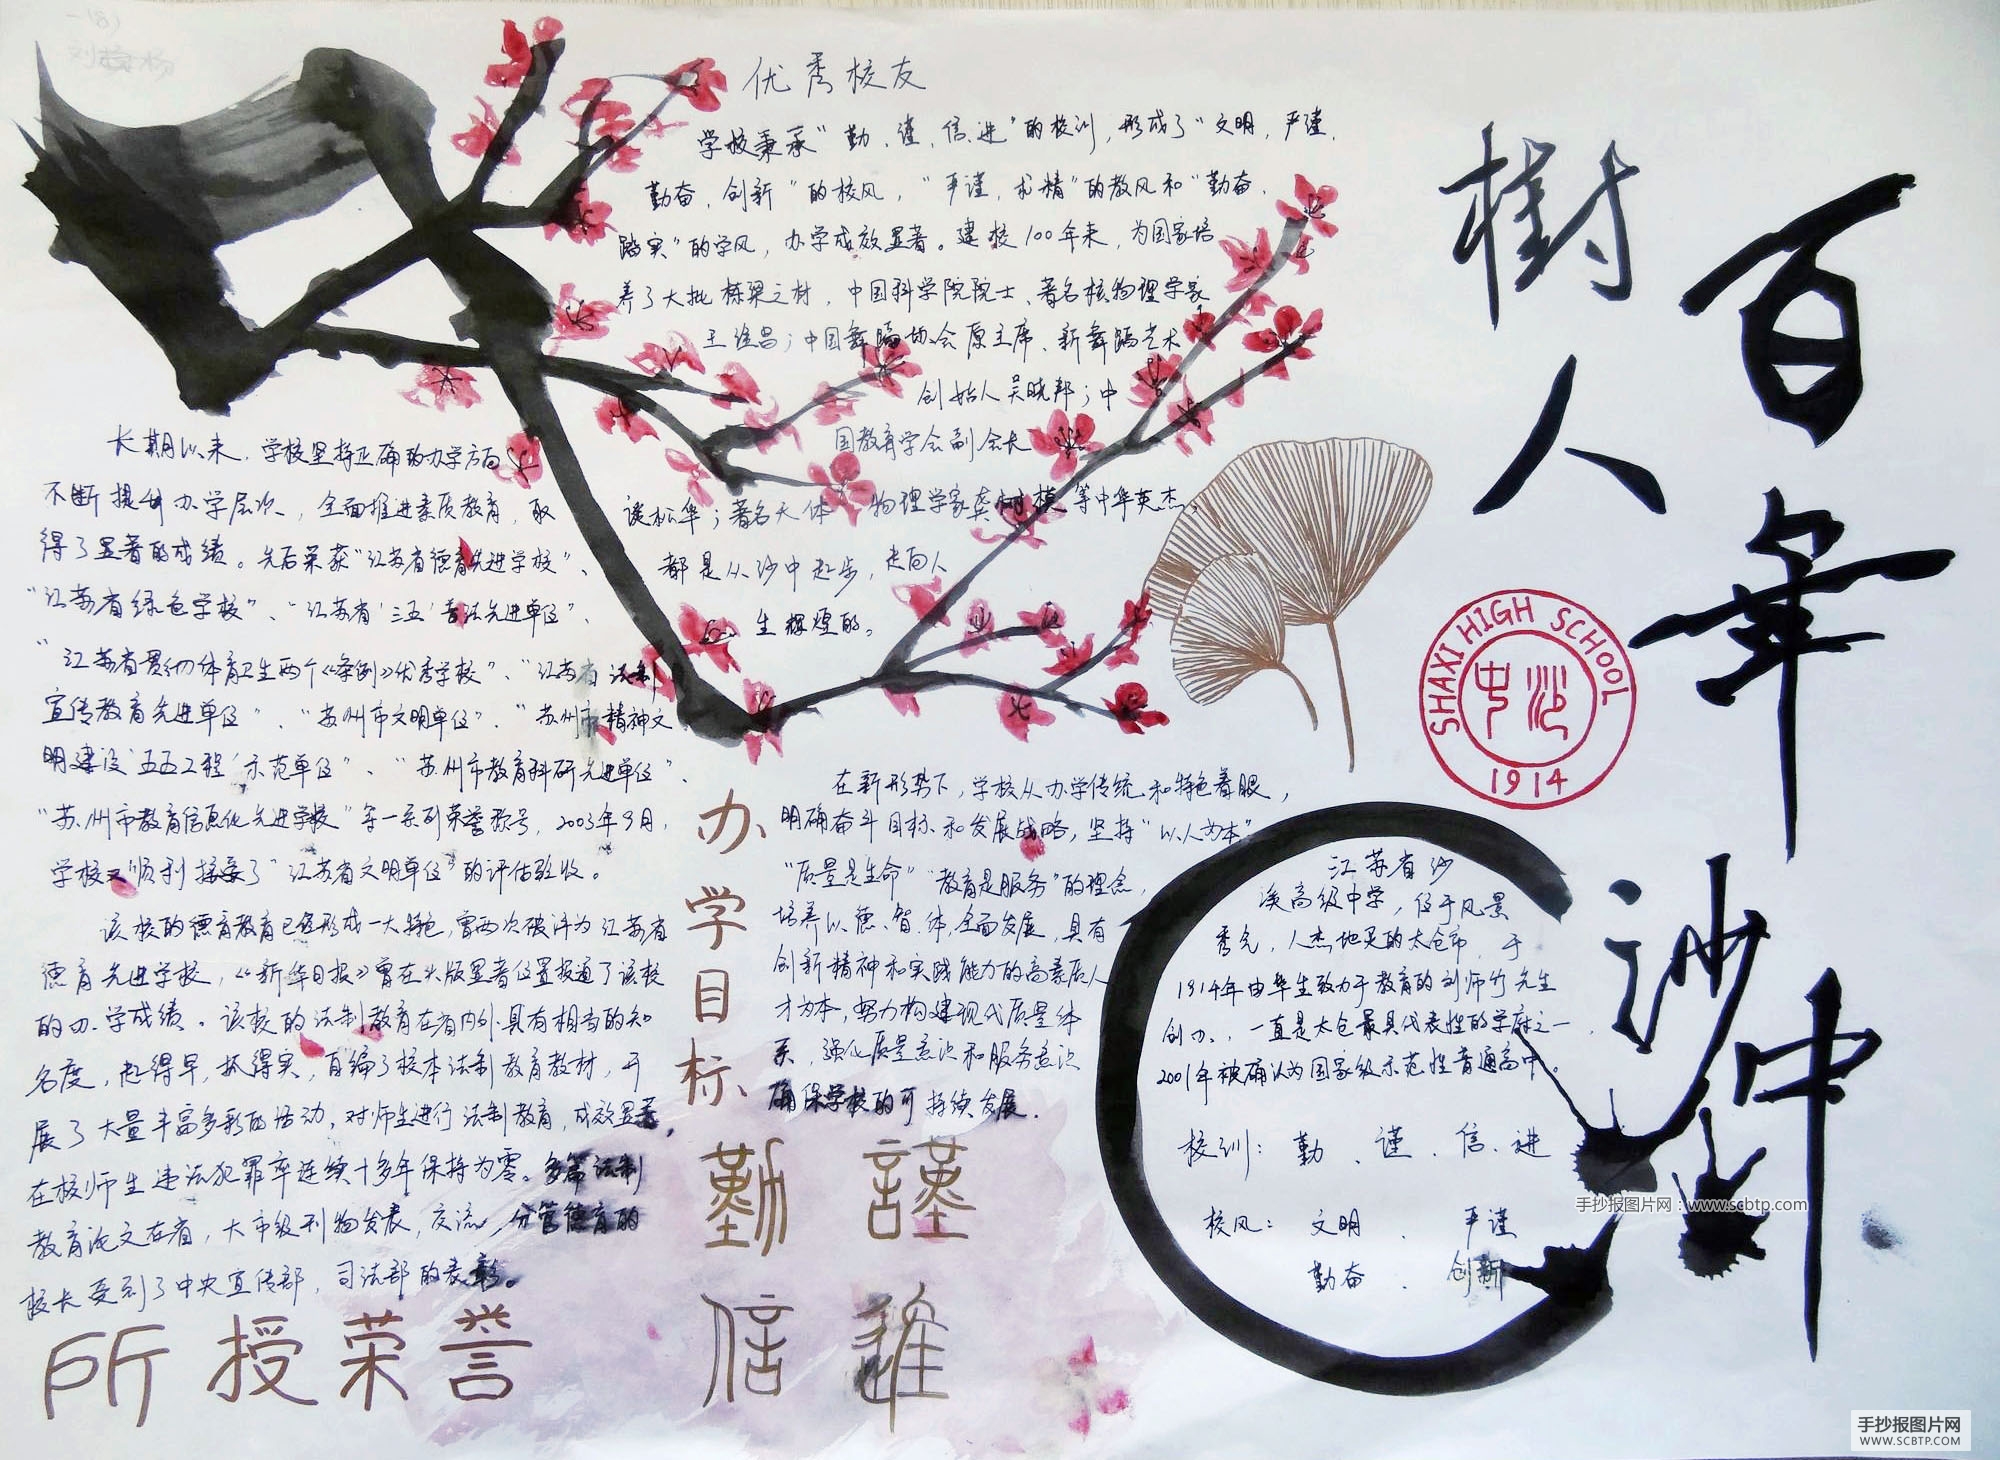 一(8)
优秀校友
学校秉承“勤、谨、信、进”的校训,形成了“文明,严谨,
勤奋,创新”的校风,“严谨,求精”的教风和“勤奋、
踏实”的学风,办学成效显著。建校100年来,为国家培
养了大批栋梁之材,中国科学院院士、著名核物理学家
王淦昌;中国舞蹈协会原主席、新舞蹈艺术
创始人吴晓邦;中
国教育学会副会长
谈松华;著名天体物理学家龚树模等中华英杰,
都是从沙中起步,走向人
生辉煌的。
百年沙中
樹人
SHAXI HIGH SCHOOL
沙中
1914
长期以来,学校坚持正确的办学方向
不断提升办学层次,全面推进素质教育,取
得了显著的成绩。先后荣获“江苏省德育先进学校”、
“江苏省绿色学校”、“江苏省‘三五’普法先进单位”、
“江苏省贯彻体育卫生两个《条例》优秀学校”、“江苏省法制
宣传教育先进单位”、“苏州市文明单位”、“苏州市精神文
明建设‘五五工程’示范单位”、“苏州市教育科研先进单位”、
“苏州市教育信息化先进学校”等一系列荣誉称号,2003年9月,
学校又顺利接受了“江苏省文明单位”的评估验收。
该校的德育教育已经形成一大特色,曾两次被评为江苏省
德育先进学校,《新华日报》曾在头版显著位置报道了该校
的办学成绩。该校的法制教育在省内外具有相当的知
名度,起得早,抓得实,自编了校本法制教育教材,开
展了大量丰富多彩的活动,对师生进行法制教育,成效显著,
在校师生违法犯罪率连续十多年保持为零。多篇法制
教育论文在省,大市级刊物发表,交流,分管德育的
校长受到了中央宣传部,司法部的表彰。
所授荣誉
办学目标
在新形势下,学校从办学传统和特色着眼,
明确奋斗目标和发展战略,坚持“以人为本”
“质量是生命”“教育是服务”的理念,
培养以德、智、体,全面发展,具有
创新精神和实践能力的高素质人
才为本,努力构建现代质量体
系,强化质量意识和服务意识
确保学校的可持续发展.
勤 謹
信 進
江苏省沙
溪高级中学,位于风景
秀美,人杰地灵的太仓市,于
1914年由毕生致力于教育的刘师竹先生
创办,一直是太仓最具代表性的学府之一,
2001年被确认为国家级示范性普通高中。
校训:勤、谨、信、进
校风:文明、严谨
勤奋、创新
手抄报图片网:www.scbtp.com
手抄报图片网
WWW.SCBTP.COM